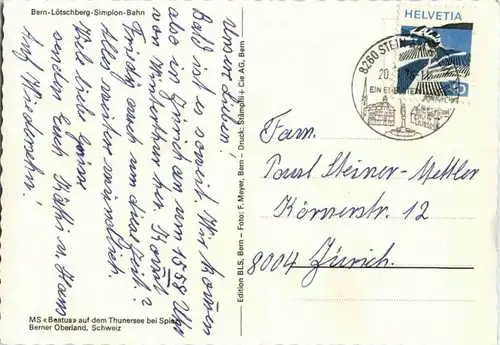 Bern-Lötschberg-Simplon-Bahn
Unsere Lieben!
Bald ist es soweit. Wir kommen
also in Zürich an um 18 Uhr
von Winterthur her. Kommt
Fridy auch um diese Zeit?
Alles weitere mündlich.
Viele liebe Grüsse
senden Euch Käthi u. Hans
Auf Wiedersehn!
MS «Beatus» auf dem Thunersee bei Spiez
Berner Oberland, Schweiz
Edition BLS, Bern – Foto: F. Meyer, Bern – Druck: Stämpfli + Cie AG, Bern
HELVETIA
8260 STEIN
20.
Fam.
Paul Steiner-Mettler
Körnerstr. 12
8004 Zürich.